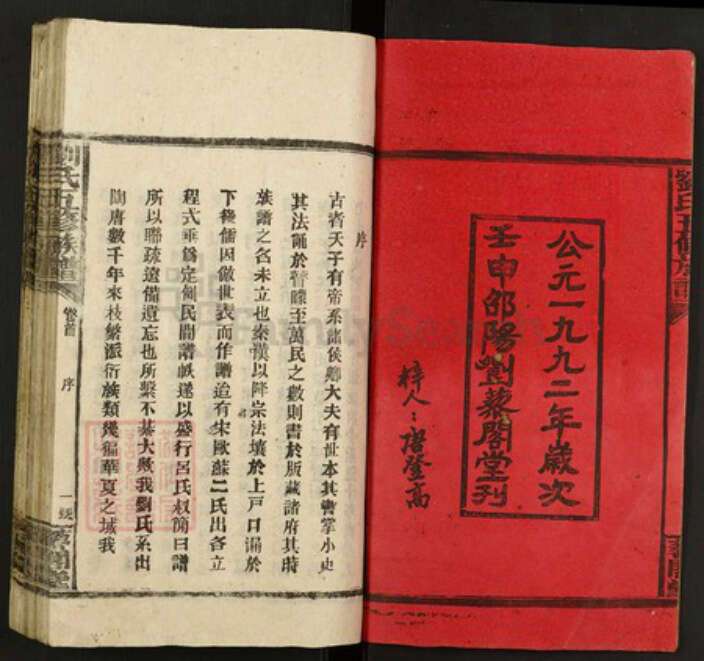 公元一九九二年歲次
壬申邵陽劉藜閣堂刋
梓人：唐登高
劉氏五修族譜
序
古者天子有帝系諸侯卿大夫有世本其書掌小史
其法誦於瞽矇至萬民之數則書於版藏諸府其時
族譜之名未立也秦漢以降宗法壞於上戸口漏於
下後儒因倣世表而作譜迨有宋歐蘇二氏出各立
程式垂爲定例民間譜帙遂以盛行呂氏叔簡曰譜
所以聯疏遠備遺忘也所繫不綦大歟我劉氏系出
陶唐數千年來枝繁派衍族類幾徧華夏之域我
劉氏五修族譜
卷首
序
一
藜閣堂